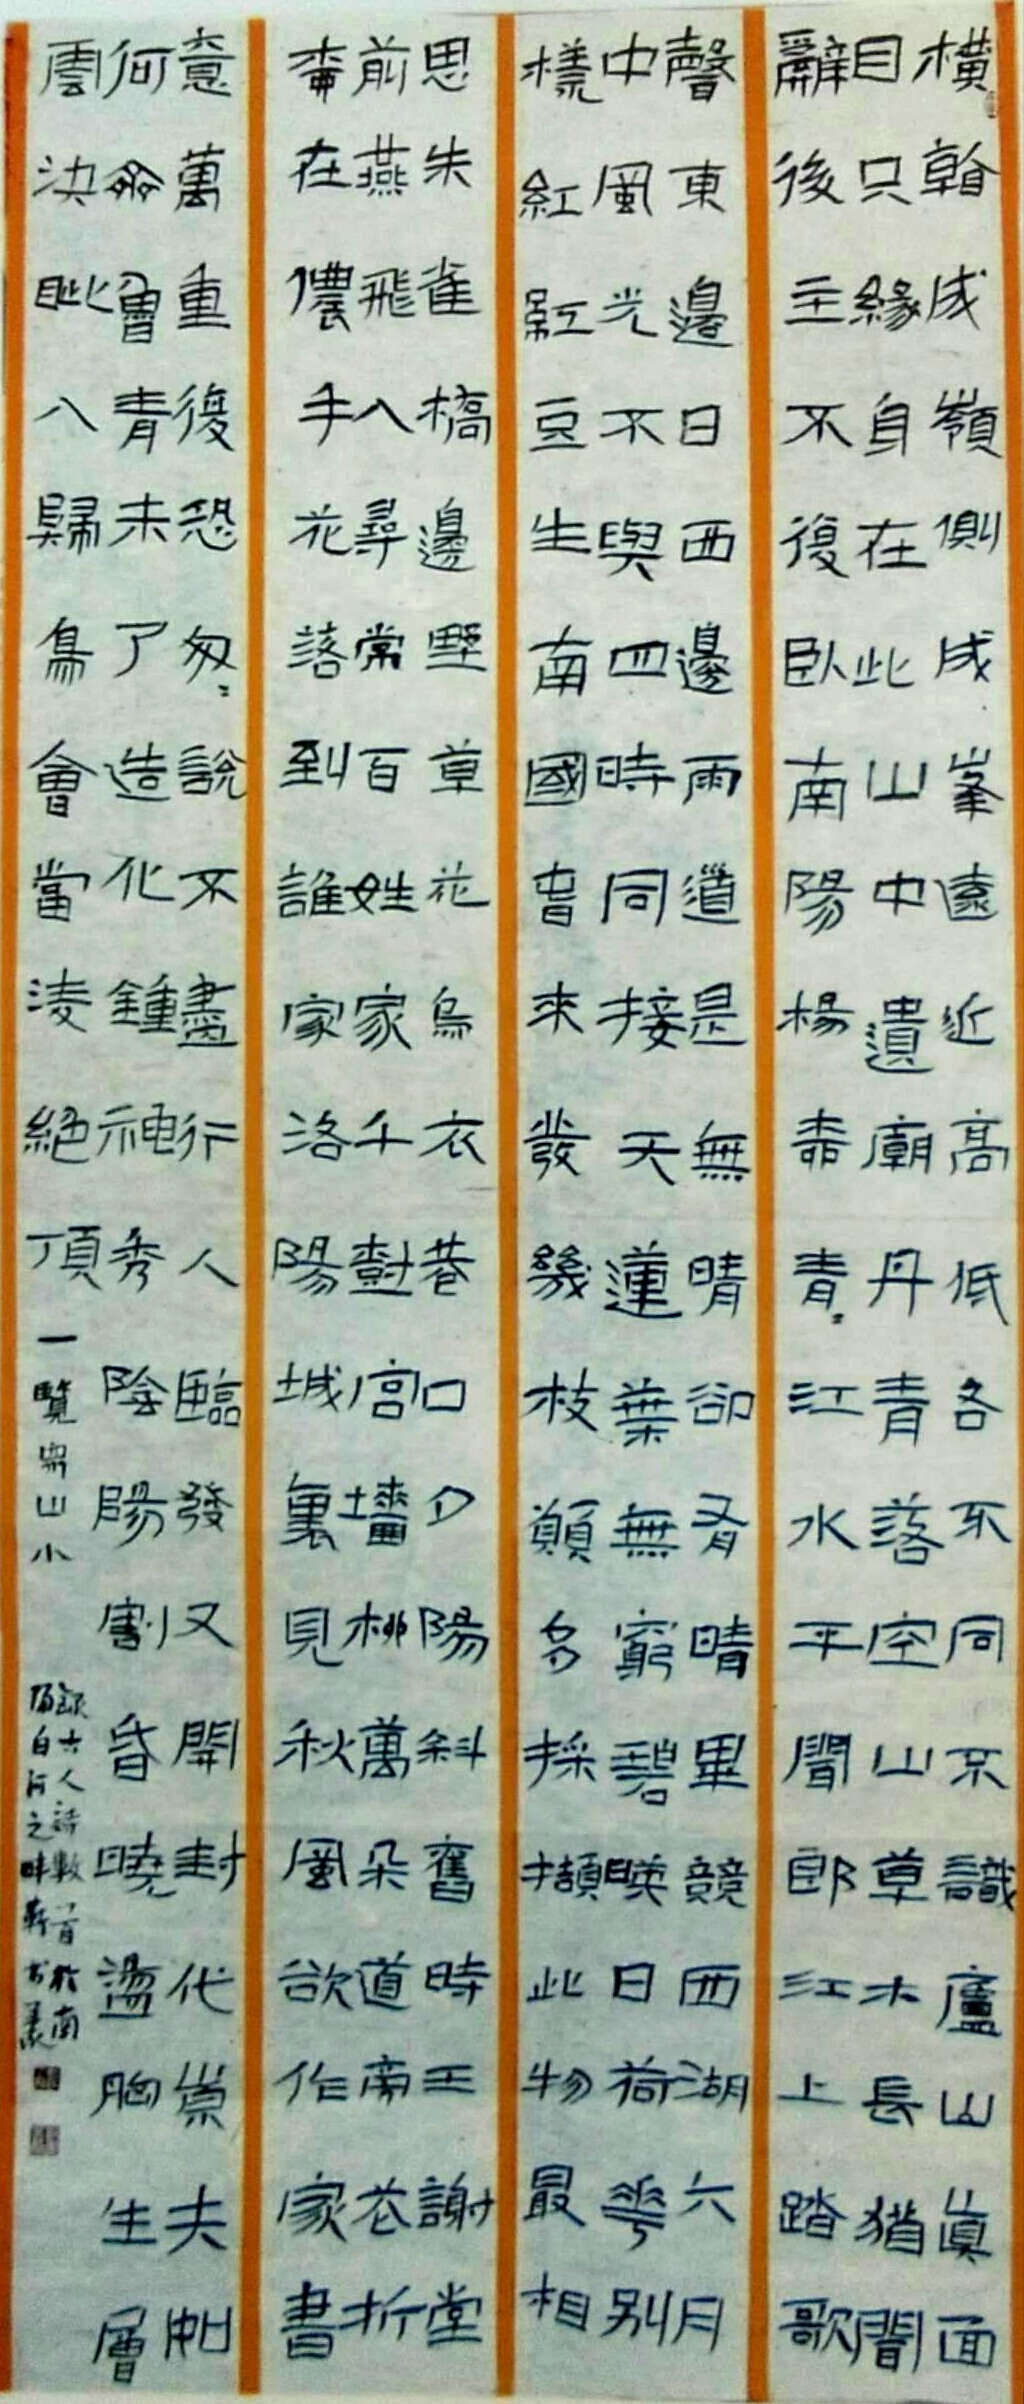 橫看成嶺側成峯遠近高低各不同不識廬山眞面
目只緣身在此山中遺廟丹青落空山草木長猶聞
辭後主不復臥南陽楊柳青青江水平聞郎江上踏歌
聲東邊日西邊雨道是無晴卻有晴畢競西湖六月
中風光不與四時同接天蓮葉無窮碧映日荷華別
樣紅紅豆生南國春來發幾枝願多採擷此物最相
思朱雀橋邊野草花烏衣巷口夕陽斜舊時王謝堂
前燕飛入尋常百姓家千樹宮墻桃萬朵道帝花折
在儂手花落到誰家洛陽城裏見秋風欲作家書
意萬重復恐匆〻說不盡行人臨發又開封代崇夫如
何齊魯青未了造化鍾神秀陰陽割昏曉盪胸生層
雲決眦入歸鳥會當凌絕頂一覽眾山小
錄古人詩數首於南
陽白河之畔靳